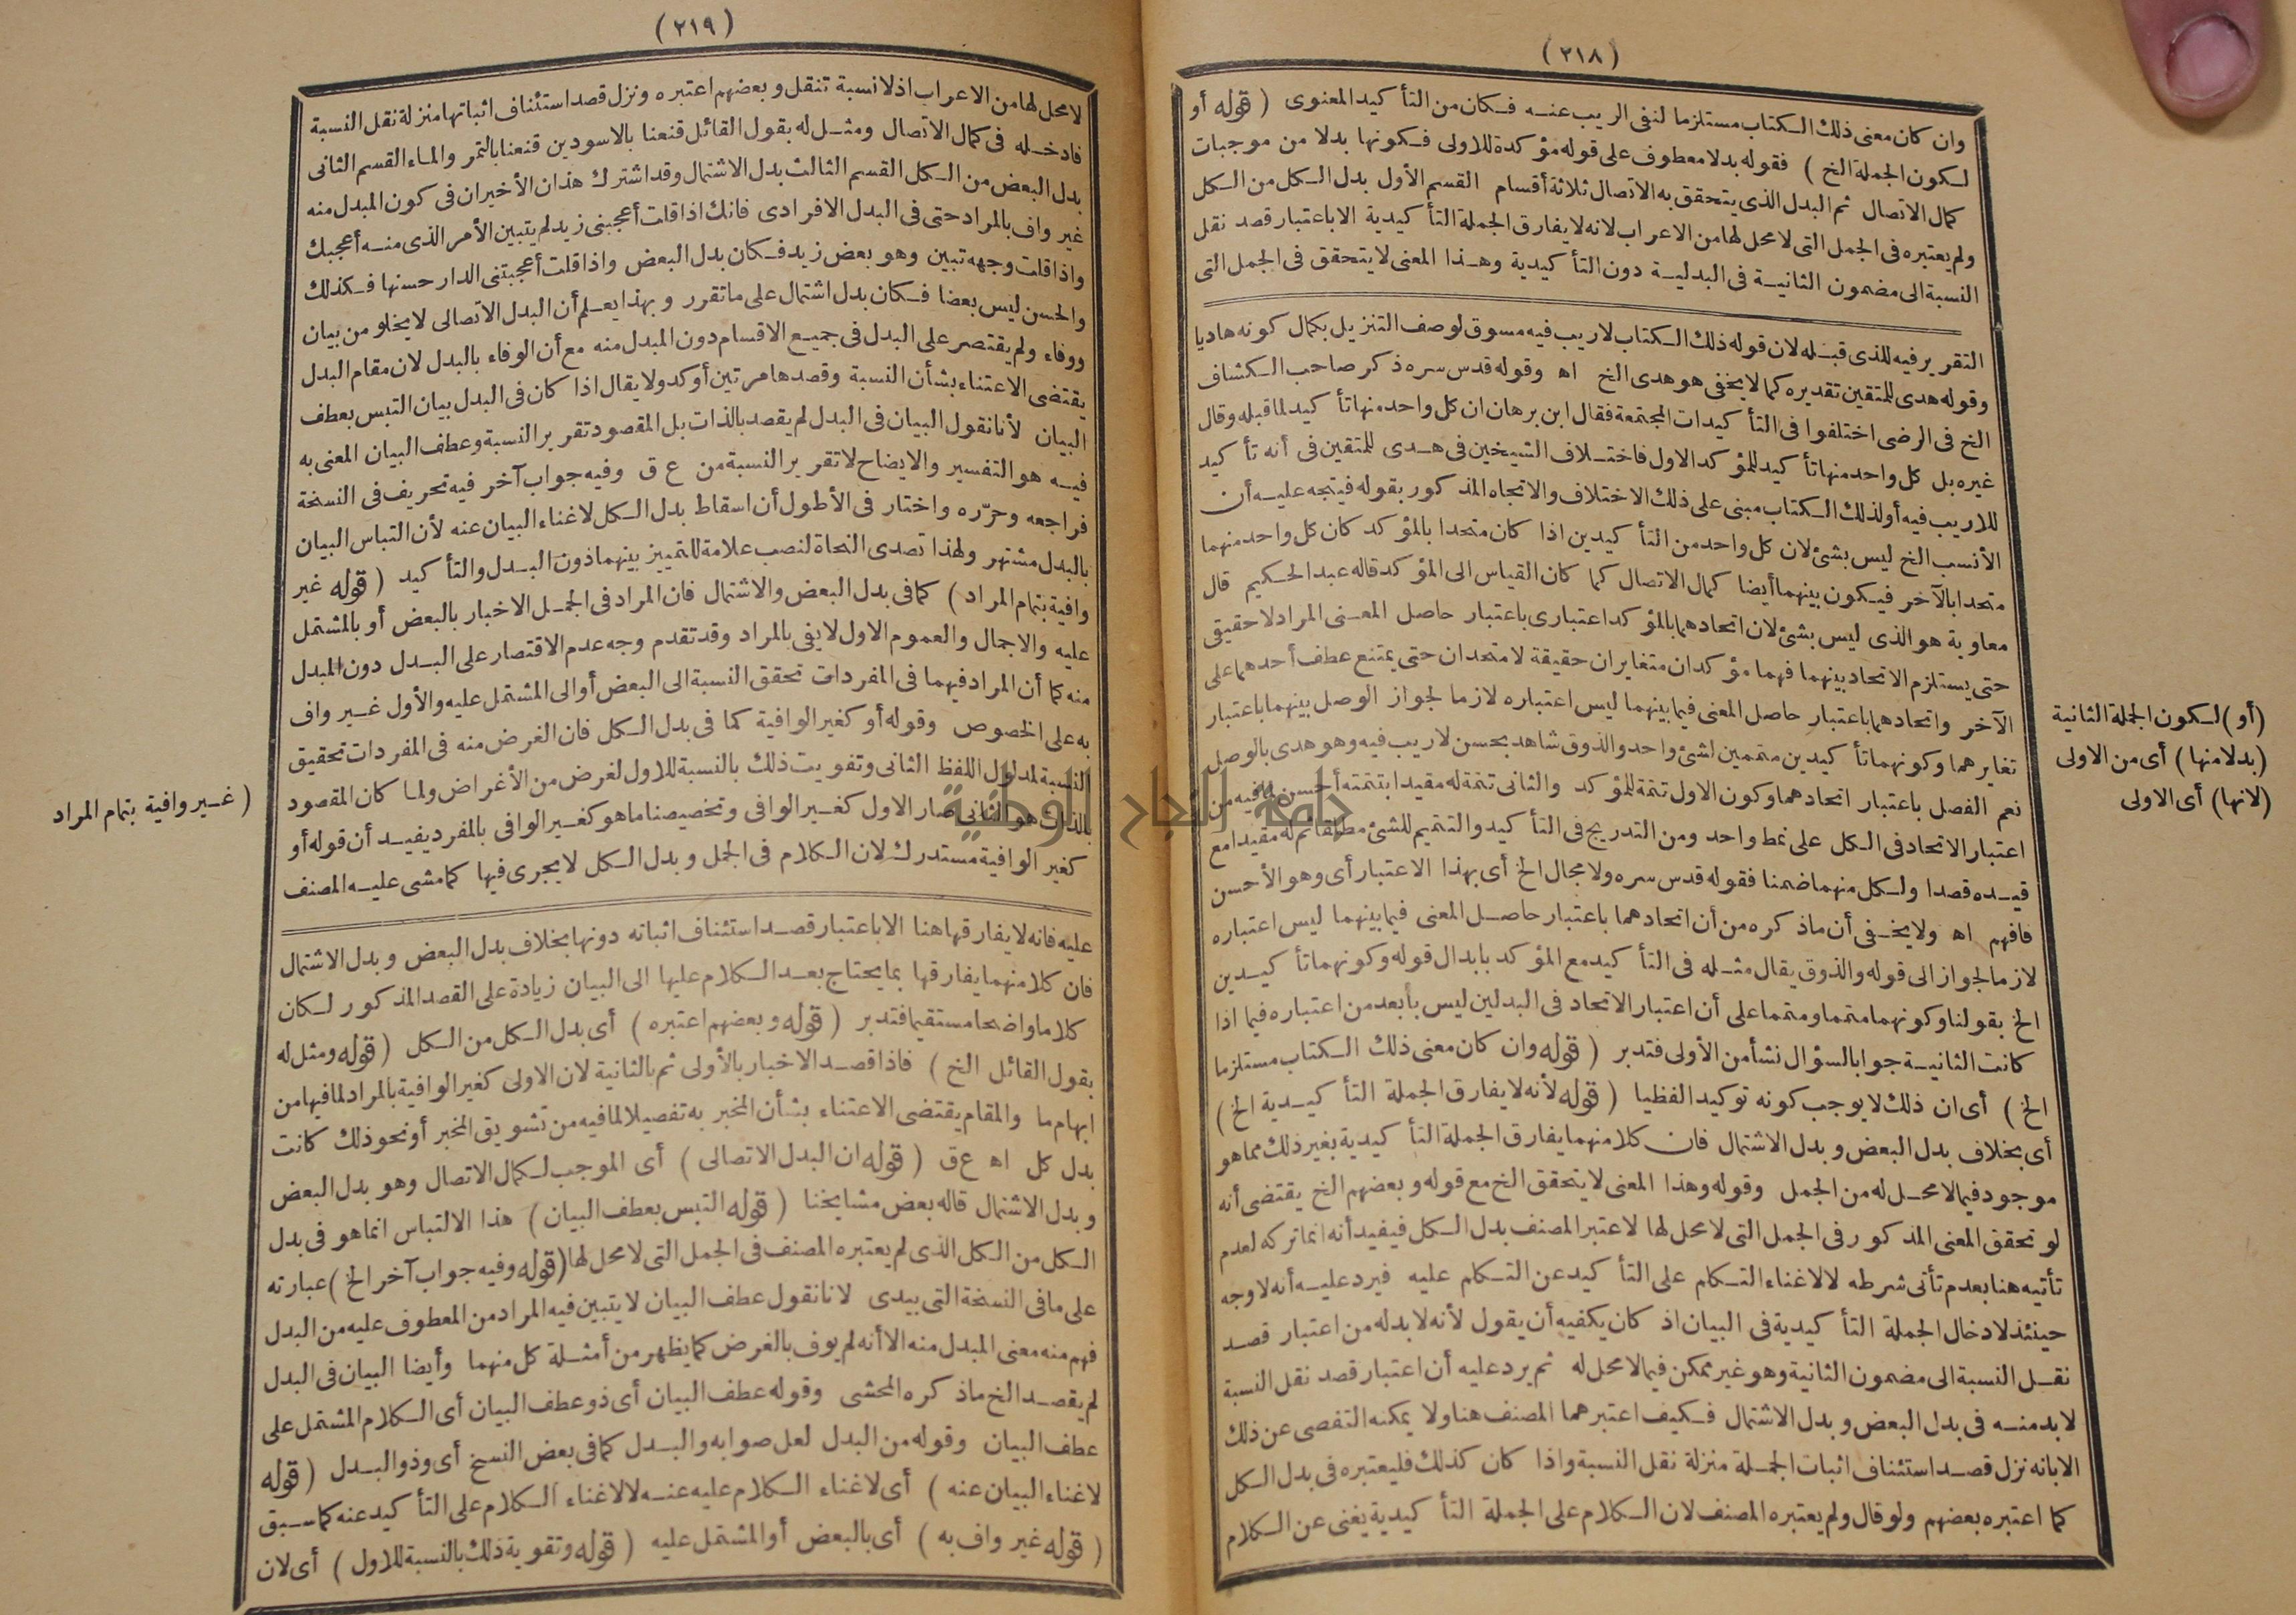 (٢١٨)
وان كان معنى ذلك الكتاب مستلزما لنفى الريب عنه فكان من التأكيد المعنوى (قوله أو
لكون الجملة الخ) فقوله بدلا معطوف على قوله مؤكدة للاولى فكونها بدلا من موجبات
كمال الاتصال ثم البدل الذى يتحقق به الاتصال ثلاثة أقسام القسم الأول بدل الكل من الكل
ولم يعتبره فى الجمل التى لا محل لها من الاعراب لانه لا يفارق الجملة التأكيدية الا باعتبار قصد نقل
النسبة الى مضمون الثانية فى البدلية دون التأكيدية وهذا المعنى لا يتحقق فى الجمل التى
التقرير فيه للذى قبله لان قوله ذلك الكتاب لا ريب فيه مسوق لوصف التنزيل بكمال كونه هاديا
وقوله هدى للمتقين تقديره كما لا يخفى هو هدى الخ اه وقوله قدس سره ذكر صاحب الكشاف
الخ فى الرضى اختلفوا فى التأكيدات المجتمعة فقال ابن برهان ان كل واحد منها تأكيد لما قبله وقال
غيره بل كل واحد منها تأكيد للمؤكد الاول فاختلاف الشيخين فى هدى للمتقين فى أنه تأكيد
للاريب فيه أو لذلك الكتاب مبنى على ذلك الاختلاف والاتجاه المذكور بقوله فيتجه عليه أن
الأنسب الخ ليس بشئ لان كل واحد من التأكيدين اذا كان متحدا بالمؤكد كان كل واحد منهما
متحدا بالآخر فيكون بينهما أيضا كمال الاتصال كما كان القياس الى المؤكد قاله عبد الحكيم قال
معاوية هو الذى ليس بشئ لان اتحادهما بالمؤكد اعتبارى باعتبار حاصل المعنى المراد لا حقيقى
حتى يستلزم الاتحاد بينهما فهما مؤكدان متغايران حقيقة لا متحدان حتى يمتنع عطف أحدهما على
الآخر واتحادهما باعتبار حاصل المعنى فيما بينهما ليس اعتباره لازما لجواز الوصل بينهما باعتبار
تغايرهما وكونهما تأكيدين متممين لشئ واحد والذوق شاهد بحسن لا ريب فيه وهو هدى بالوصل
نعم الفصل باعتبار اتحادهما وكون الاول تتمة للمؤكد والثانى تتمة له مقيدا بتتمته أحسن لما فيه من
اعتبار الاتحاد فى الكل على نمط واحد ومن التدريج فى التأكيد والتتميم للشئ مطلقا ثم له مقيدا مع
قيده قصدا ولكل منهما ضمنا فقوله قدس سره ولا مجال الخ أى بهذا الاعتبار أى وهو الأحسن
فافهم اه ولا يخفى أن ما ذكره من أن اتحادهما باعتبار حاصل المعنى فيما بينهما ليس اعتباره
لازما لجواز الى قوله والذوق يقال مثله فى التأكيد مع المؤكد بابدال قوله وكونهما تأكيدين
الخ بقولنا وكونهما متمما ومتمما على أن اعتبار الاتحاد فى البدلين ليس بأبعد من اعتباره فيما اذا
كانت الثانية جوابا لسؤال نشأ من الأولى فتدبر (قوله وان كان معنى ذلك الكتاب مستلزما
الخ) أى ان ذلك لا يوجب كونه توكيدا لفظيا (قوله لأنه لا يفارق الجملة التأكيدية الخ)
أى بخلاف بدل البعض وبدل الاشتمال فان كلا منهما يفارق الجملة التأكيدية بغير ذلك مما هو
موجود فيما لا محل له من الجمل وقوله وهذا المعنى لا يتحقق الخ مع قوله وبعضهم الخ يقتضى أنه
لو تحقق المعنى المذكور فى الجمل التى لا محل لها لاعتبر المصنف بدل الكل فيفيد أنه انما تركه لعدم
تأتيه هنا بعدم تأتى شرطه لا لاغناء التكلم على التأكيد عن التكلم عليه فيرد عليه أنه لا وجه
حينئذ لادخال الجملة التأكيدية فى البيان اذ كان يكفيه أن يقول لأنه لا بد له من اعتبار قصد
نقل النسبة الى مضمون الثانية وهو غير ممكن فيما لا محل له ثم يرد عليه أن اعتبار قصد نقل النسبة
لا بد منه فى بدل البعض وبدل الاشتمال فكيف اعتبرهما المصنف هنا ولا يمكنه التفصى عن ذلك
الا بانه نزل قصد استئناف اثبات الجملة منزلة نقل النسبة واذا كان كذلك فليعتبره فى بدل الكل
كما اعتبره بعضهم ولو قال ولم يعتبره المصنف لان الكلام على الجملة التأكيدية يغنى عن الكلام
(أو) لكون الجملة الثانية
(بدلا منها) أى من الاولى
(لانها) أى الاولى
(٢١٩)
لا محل لها من الاعراب اذ لا نسبة تنقل وبعضهم اعتبره ونزل قصد استئناف اثباتها منزلة نقل النسبة
فادخله فى كمال الاتصال ومثل له بقول القائل قنعنا بالاسودين قنعنا بالتمر والماء القسم الثانى
بدل البعض من الكل القسم الثالث بدل الاشتمال وقد اشترك هذان الأخيران فى كون المبدل منه
غير واف بالمراد حتى فى البدل الافرادى فانك اذا قلت أعجبنى زيد لم يتبين الأمر الذى منه أعجبك
واذا قلت وجهه تبين وهو بعض زيد فكان بدل البعض واذا قلت أعجبتنى الدار حسنها فكذلك
والحسن ليس بعضا فكان بدل اشتمال على ما تقرر وبهذا يعلم أن البدل الاتصالى لا يخلو من بيان
ووفاء ولم يقتصر على البدل فى جميع الاقسام دون المبدل منه مع أن الوفاء بالبدل لان مقام البدل
يقتضى الاعتناء بشأن النسبة وقصدها مرتين أوكد ولا يقال اذا كان فى البدل بيان التبس بعطف
البيان لأنا نقول البيان فى البدل لم يقصد بالذات بل المقصود تقرير النسبة وعطف البيان المعنى به
فيه هو التفسير والايضاح لا تقرير النسبة من ع ق وفيه جواب آخر فيه تحريف فى النسخة
فراجعه وحرّره واختار فى الأطول أن اسقاط بدل الكل لاغناء البيان عنه لأن التباس البيان
بالبدل مشتهر ولهذا تصدى النحاة لنصب علامة للتمييز بينهما دون البدل والتأكيد (قوله غير
وافية بتمام المراد) كما فى بدل البعض والاشتمال فان المراد فى الجمل الاخبار بالبعض أو بالمشتمل
عليه والاجمال والعموم الاول لا يفى بالمراد وقد تقدم وجه عدم الاقتصار على البدل دون المبدل
منه كما أن المراد فيهما فى المفردات تحقق النسبة الى البعض أو الى المشتمل عليه والأول غير واف
به على الخصوص وقوله أو كغير الوافية كما فى بدل الكل فان الغرض منه فى المفردات تحقيق
النسبة لمدلول اللفظ الثانى وتفويت ذلك بالنسبة للاول لغرض من الأغراض ولما كان المقصود
بالذات هو الثانى صار الاول كغير الوافى وتخصيصنا ما هو كغير الوافى بالمفرد يفيد أن قوله أو
كغير الوافية مستدرك لان الكلام فى الجمل وبدل الكل لا يجرى فيها كما مشى عليه المصنف
عليه فانه لا يفارقها هنا الا باعتبار قصد استئناف اثباته دونها بخلاف بدل البعض وبدل الاشتمال
فان كلا منهما يفارقها بما يحتاج بعد الكلام عليها الى البيان زيادة على القصد المذكور لكان
كلاما واضحا مستقيما فتدبر (قوله وبعضهم اعتبره) أى بدل الكل من الكل (قوله ومثل له
بقول القائل الخ) فاذا قصد الاخبار بالأولى ثم بالثانية لان الاولى كغير الوافية بالمراد لما فيها من
ابهام ما والمقام يقتضى الاعتناء بشأن المخبر به تفصيلا لما فيه من تشويق المخبر أو نحو ذلك كانت
بدل كل اه ع ق (قوله ان البدل الاتصالى) أى الموجب لكمال الاتصال وهو بدل البعض
وبدل الاشتمال قاله بعض مشايخنا (قوله التبس بعطف البيان) هذا الالتباس انما هو فى بدل
الكل من الكل الذى لم يعتبره المصنف فى الجمل التى لا محل لها (قوله وفيه جواب آخر الخ) عبارته
على ما فى النسخة التى بيدى لانا نقول عطف البيان لا يتبين فيه المراد من المعطوف عليه من البدل
فهم منه معنى المبدل منه الا أنه لم يوف بالغرض كما يظهر من أمثلة كل منهما وأيضا البيان فى البدل
لم يقصد الخ ما ذكره المحشى وقوله عطف البيان أى ذو عطف البيان أى الكلام المشتمل على
عطف البيان وقوله من البدل لعل صوابه والبدل كما فى بعض النسخ أى وذو البدل (قوله
لاغناء البيان عنه) أى لاغناء الكلام عليه عنه لا لاغناء الكلام على التأكيد عنه كما سبق
(قوله غير واف به) أى بالبعض أو المشتمل عليه (قوله وتقوية ذلك بالنسبة للاول) أى لان
(غير وافية بتمام المراد
جامعة النجاح الوطنية